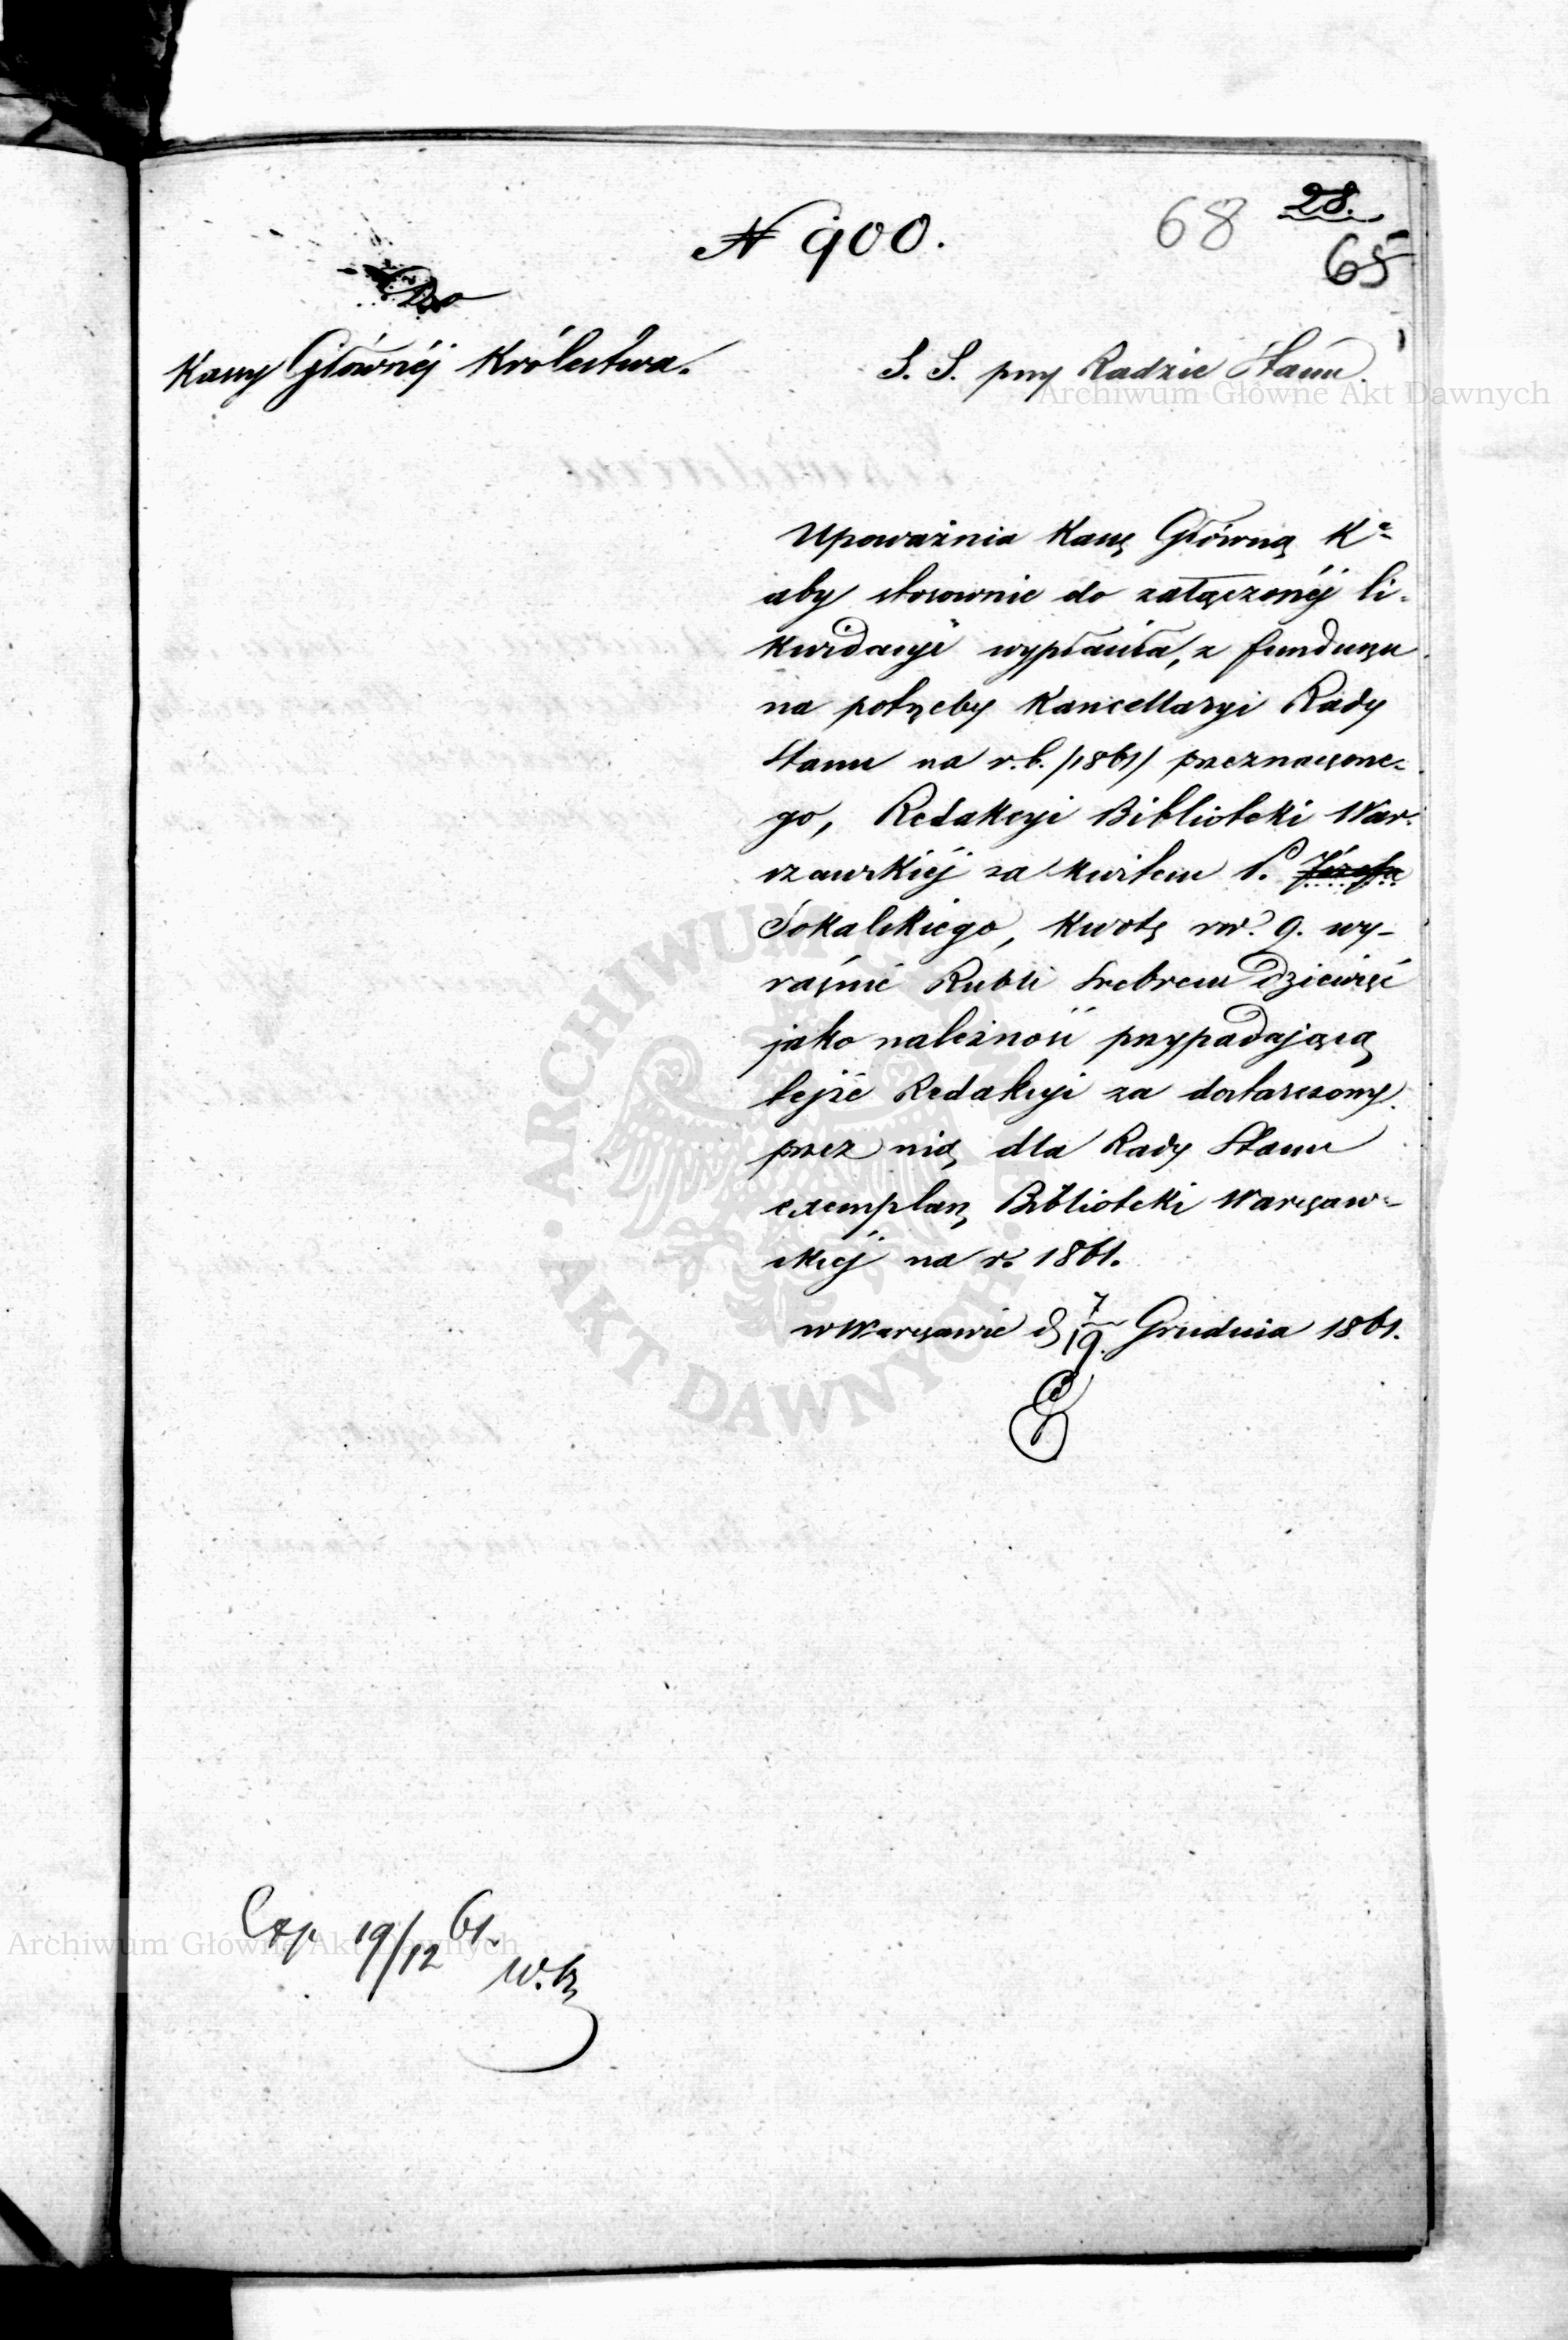 N 900.
68 28.
65
Do
Kassy Głównéj Królestwa.
S. S. przy Radzie Stanu.
Archiwum Główne Akt Dawnych
Upoważnia Kassę Główną Kᵃ
aby stosownie do załączonéj li-
kwidacyi wypłaciła, z funduszu
na potrzeby Kancellaryi Rady
Stanu na r.b. /1861/ przeznaczone-
go, Redakcyi Biblioteki War-
szawskiéj za kwitem P. Józefa
Sokalskiego, kwotę rsr. 9. wy-
raźnie Rubli Srebrem dziewięć
jako należność przypadającą
tejże Redakcyi za dostarczony
przez nią dla Rady Stanu
exemplarz Biblioteki Warszaw-
skiéj na r. 1861.
w Warszawie d 7/19. Grudnia 1861.
Exp 19/12 61.
Archiwum Główne Akt Dawnych
W.K.
ARCHIWUM GŁÓWNE · AKT DAWNYCH ·